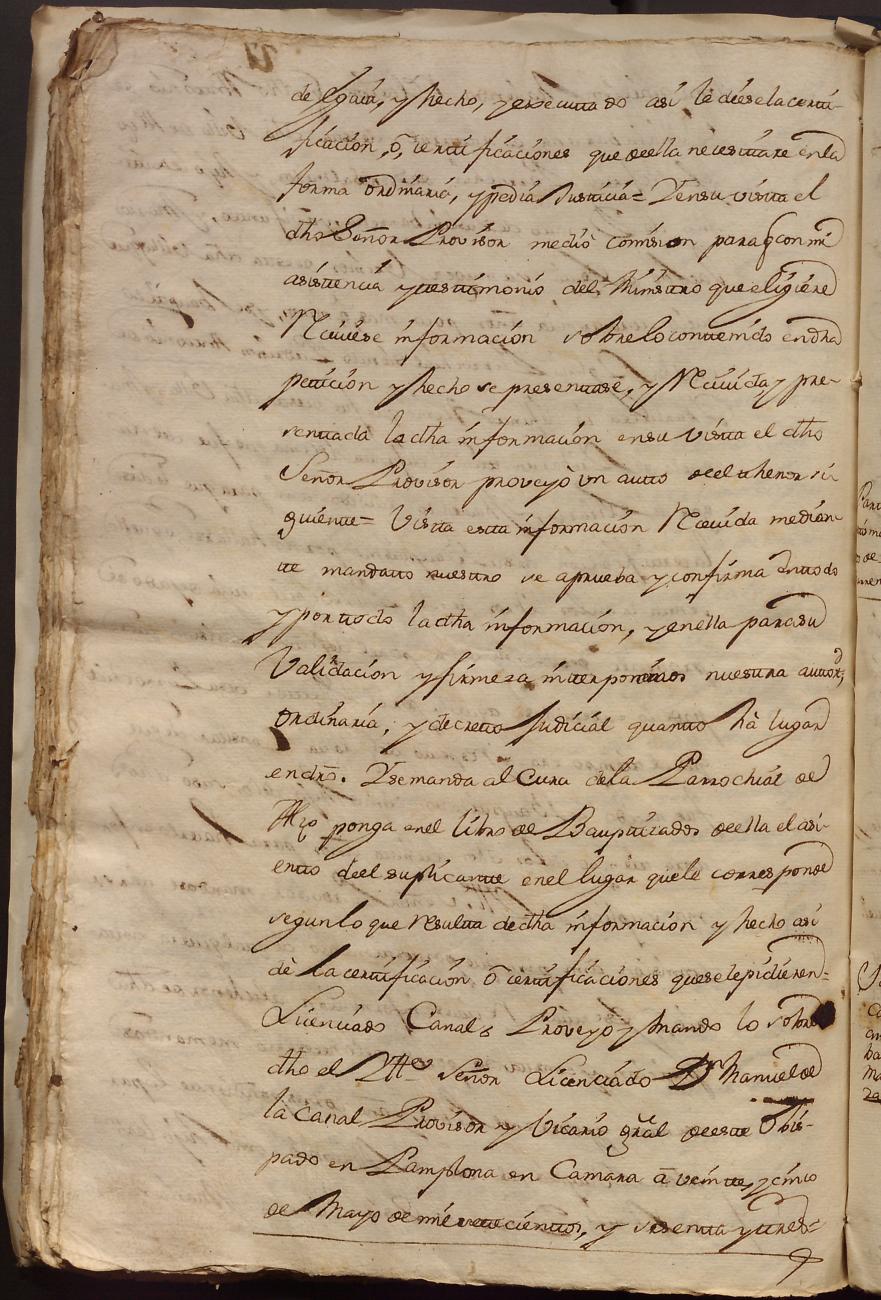 de Ygaxa, y hecho, y executtado así le diese la certti-
ficación, ó, certtificaciones que de ella necesittare en la
forma ordinaria, y pedia Justicia= Y en su vistta el
dho Señor Provisor me dió comision para q con mi
asistencia y testtimonio del Ministtro que eligiere
Reciviese información sobre lo conttenido en dha
petición y hecho se presenttase, y Recivida, y pre-
senttada la dha información en su vistta el dho
Señor Provisor proveyò un autto de el thenor si-
guientte= Vistta estta información Recivida median-
tte mandatto nuesttro se aprueba y confirma en ttodo
y por ttodo la dha información, y en ella para su
Validación y firmeza intterponemos nuesttra auttord,
ordinaria, y decretto Judicial quantto hà lugar
en dro. Y se manda al Cura de la Parrochial de
ponga en el libro de Bauptizados de ella el asi-
entto de el suplicantte en el lugar que le corresponde
segun lo que resultta de dha información y hecho así
dè la certtificación ó certtificaciones que se le pidieren=
Licenciado Canal= Proveyo y mando lo sobre
dho el Ille Señor Licenciado Dn Manuel de
la Canal Provisor y Vicario gral de estte Obis-
pado en Pamplona en Camara à veintte, y cinco
de Mayo de mil settecienttos, y sesentta y ttres=